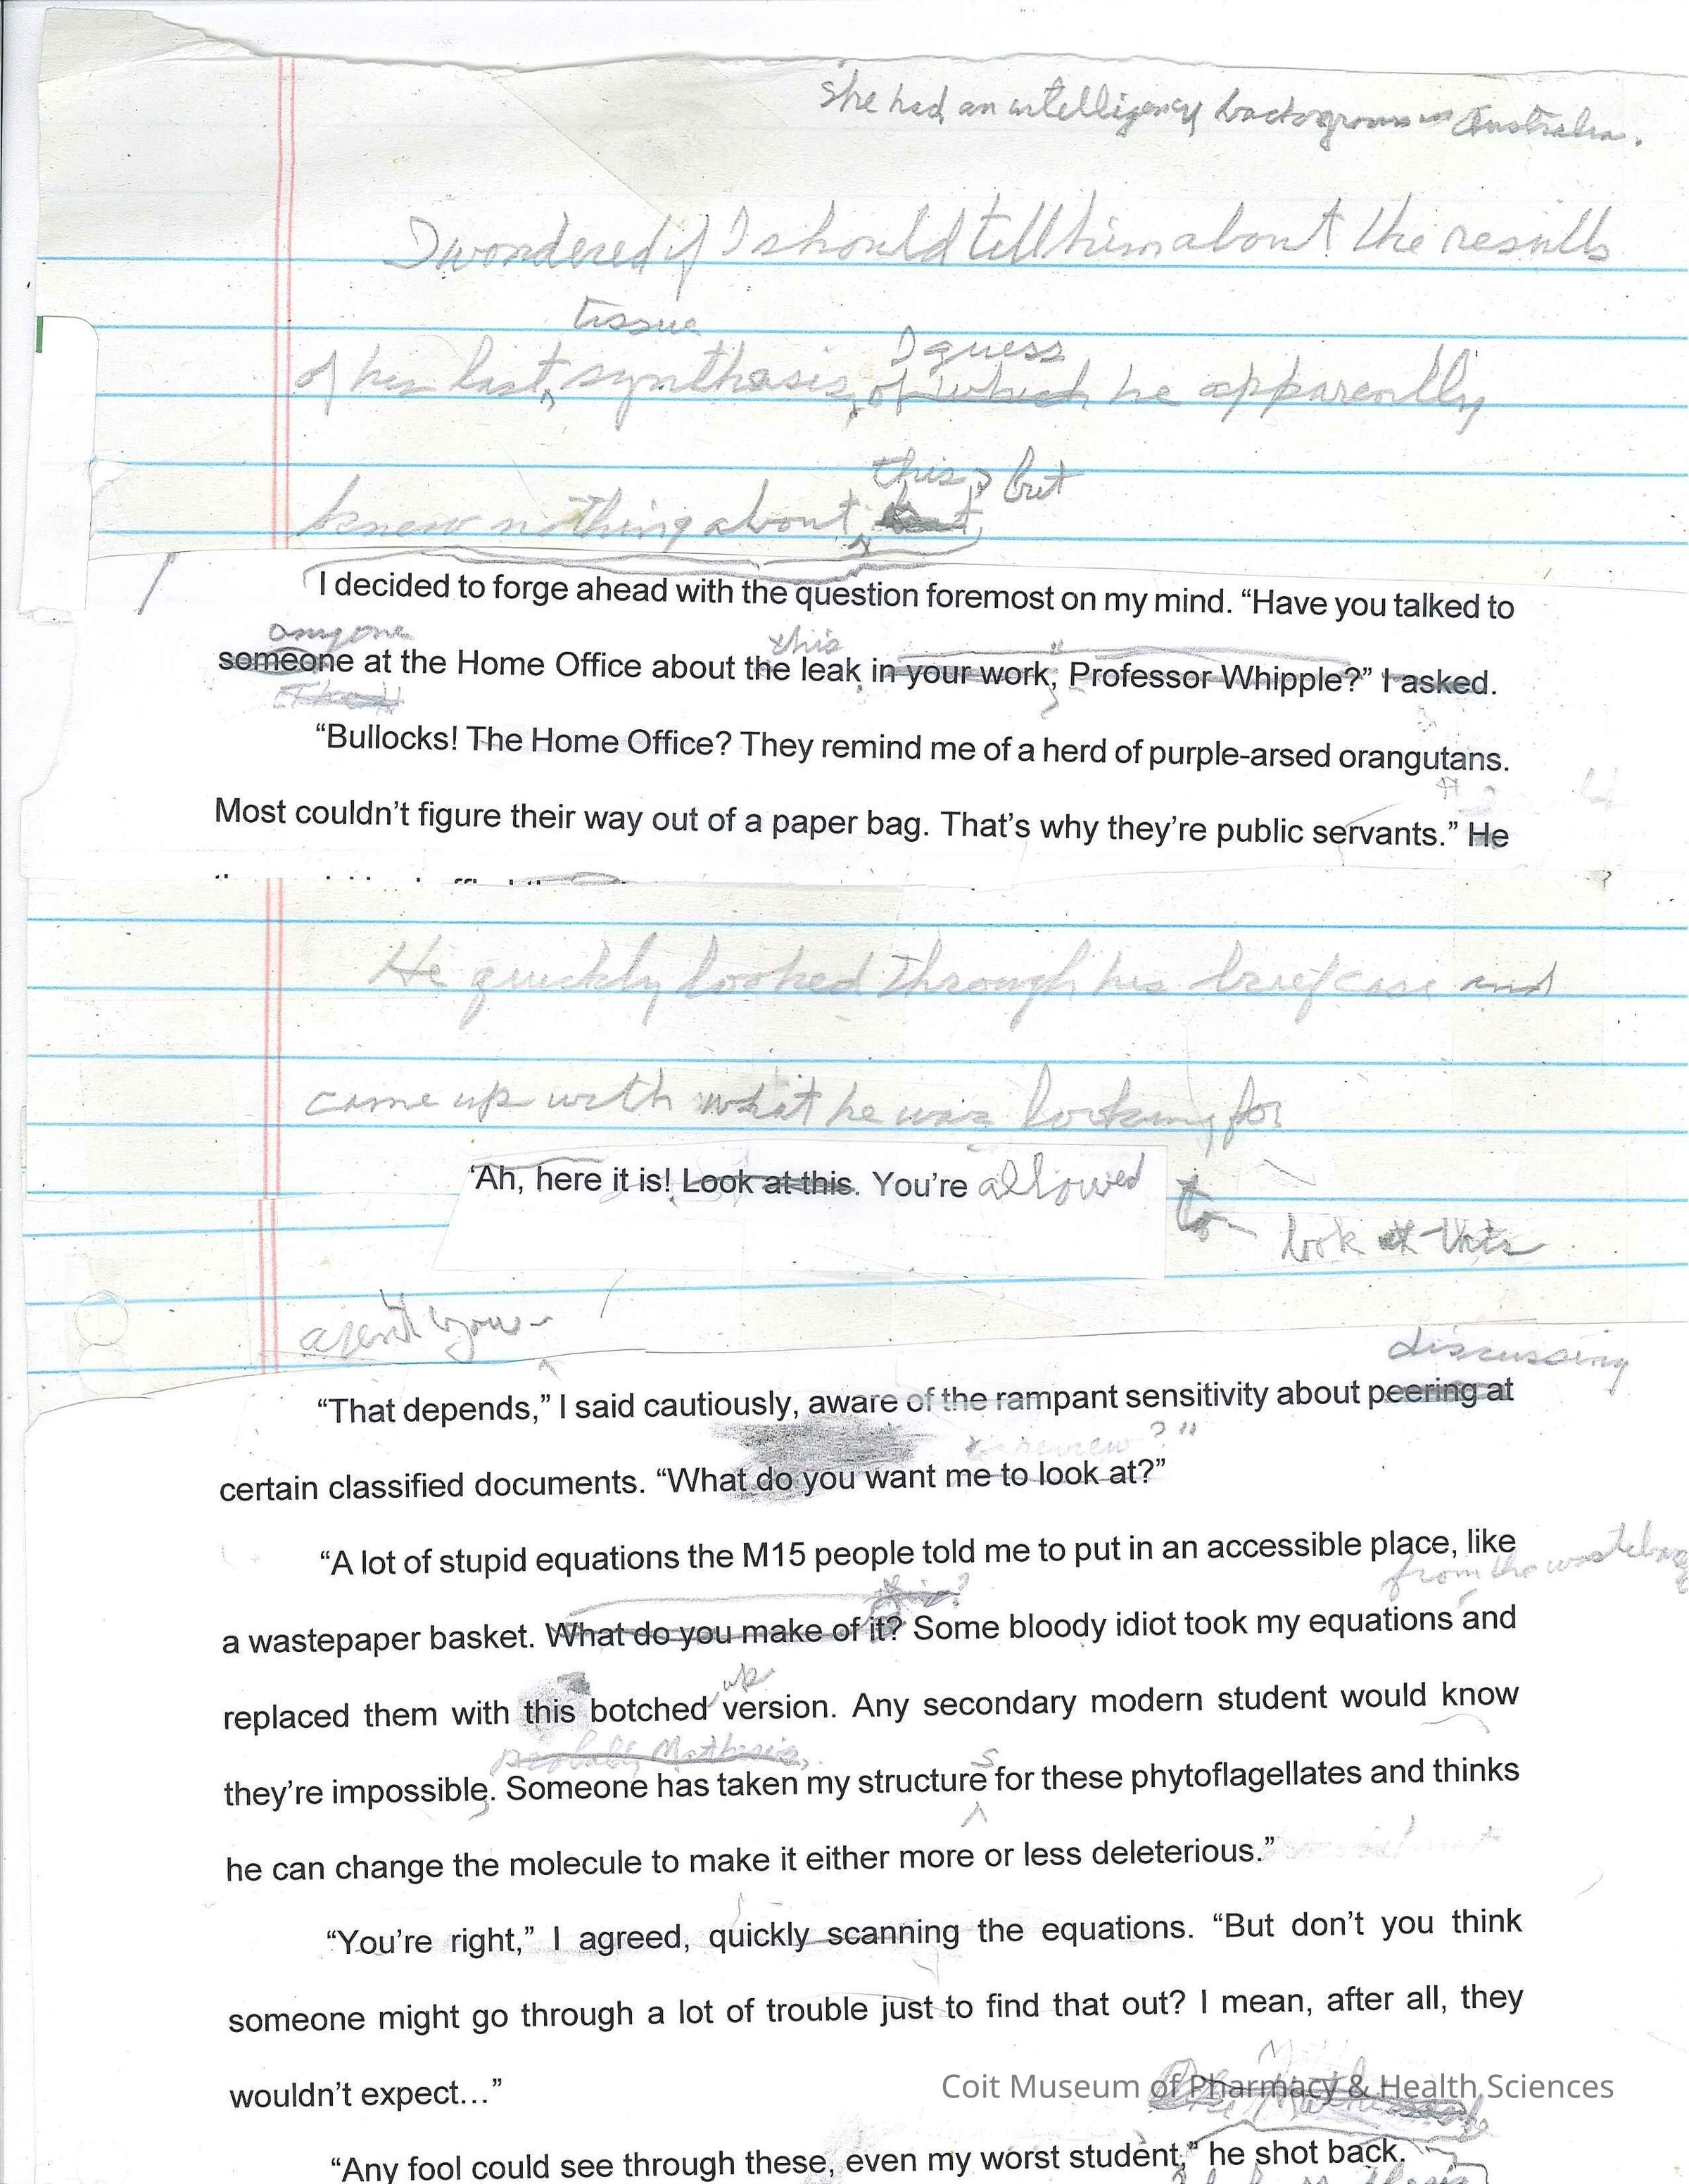 She had an intelligency background in Australia.
I wondered if I should tell him about the results
tissue
I guess
of his last synthesis, of which he apparently
this, but
knew nothing about
I decided to forge ahead with the question foremost on my mind. “Have you talked to
anyone
this
someone at the Home Office about the leak in your work, Professor Whipple?” I asked.
“Bullocks! The Home Office? They remind me of a herd of purple-arsed orangutans.
Most couldn’t figure their way out of a paper bag. That’s why they’re public servants.” He
He quickly looked through his briefcase and
came up with what he was looking for
‘Ah, here it is! Look at this. You’re allowed
to look at this
aren't you
discussing
“That depends,” I said cautiously, aware of the rampant sensitivity about peering at
review?”
certain classified documents. “What do you want me to look at?”
“A lot of stupid equations the M15 people told me to put in an accessible place, like
from the
this?
a wastepaper basket. What do you make of it? Some bloody idiot took my equations and
up
replaced them with this botched version. Any secondary modern student would know
probably
s
they’re impossible. Someone has taken my structure for these phytoflagellates and thinks
he can change the molecule to make it either more or less deleterious.”
“You’re right,” I agreed, quickly scanning the equations. “But don’t you think
someone might go through a lot of trouble just to find that out? I mean, after all, they
wouldn’t expect…”
Coit Museum of Pharmacy & Health Sciences
“Any fool could see through these, even my worst student,” he shot back.